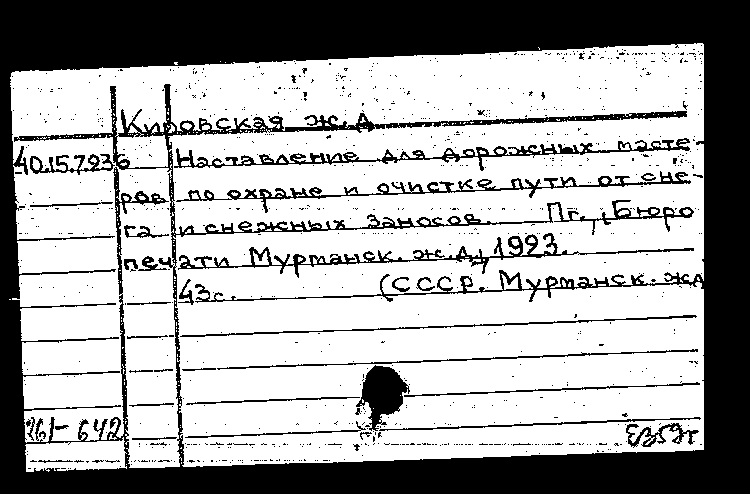 Кировская ж.д
40.15.7.236 Наставление для дорожных масте-
ров по охране и очистке пути от сне-
га и снежных заносов. Пг., Бюро
печати Мурманск. ж.д., 1923.
43с. (СССР. Мурманск. жд
261-642